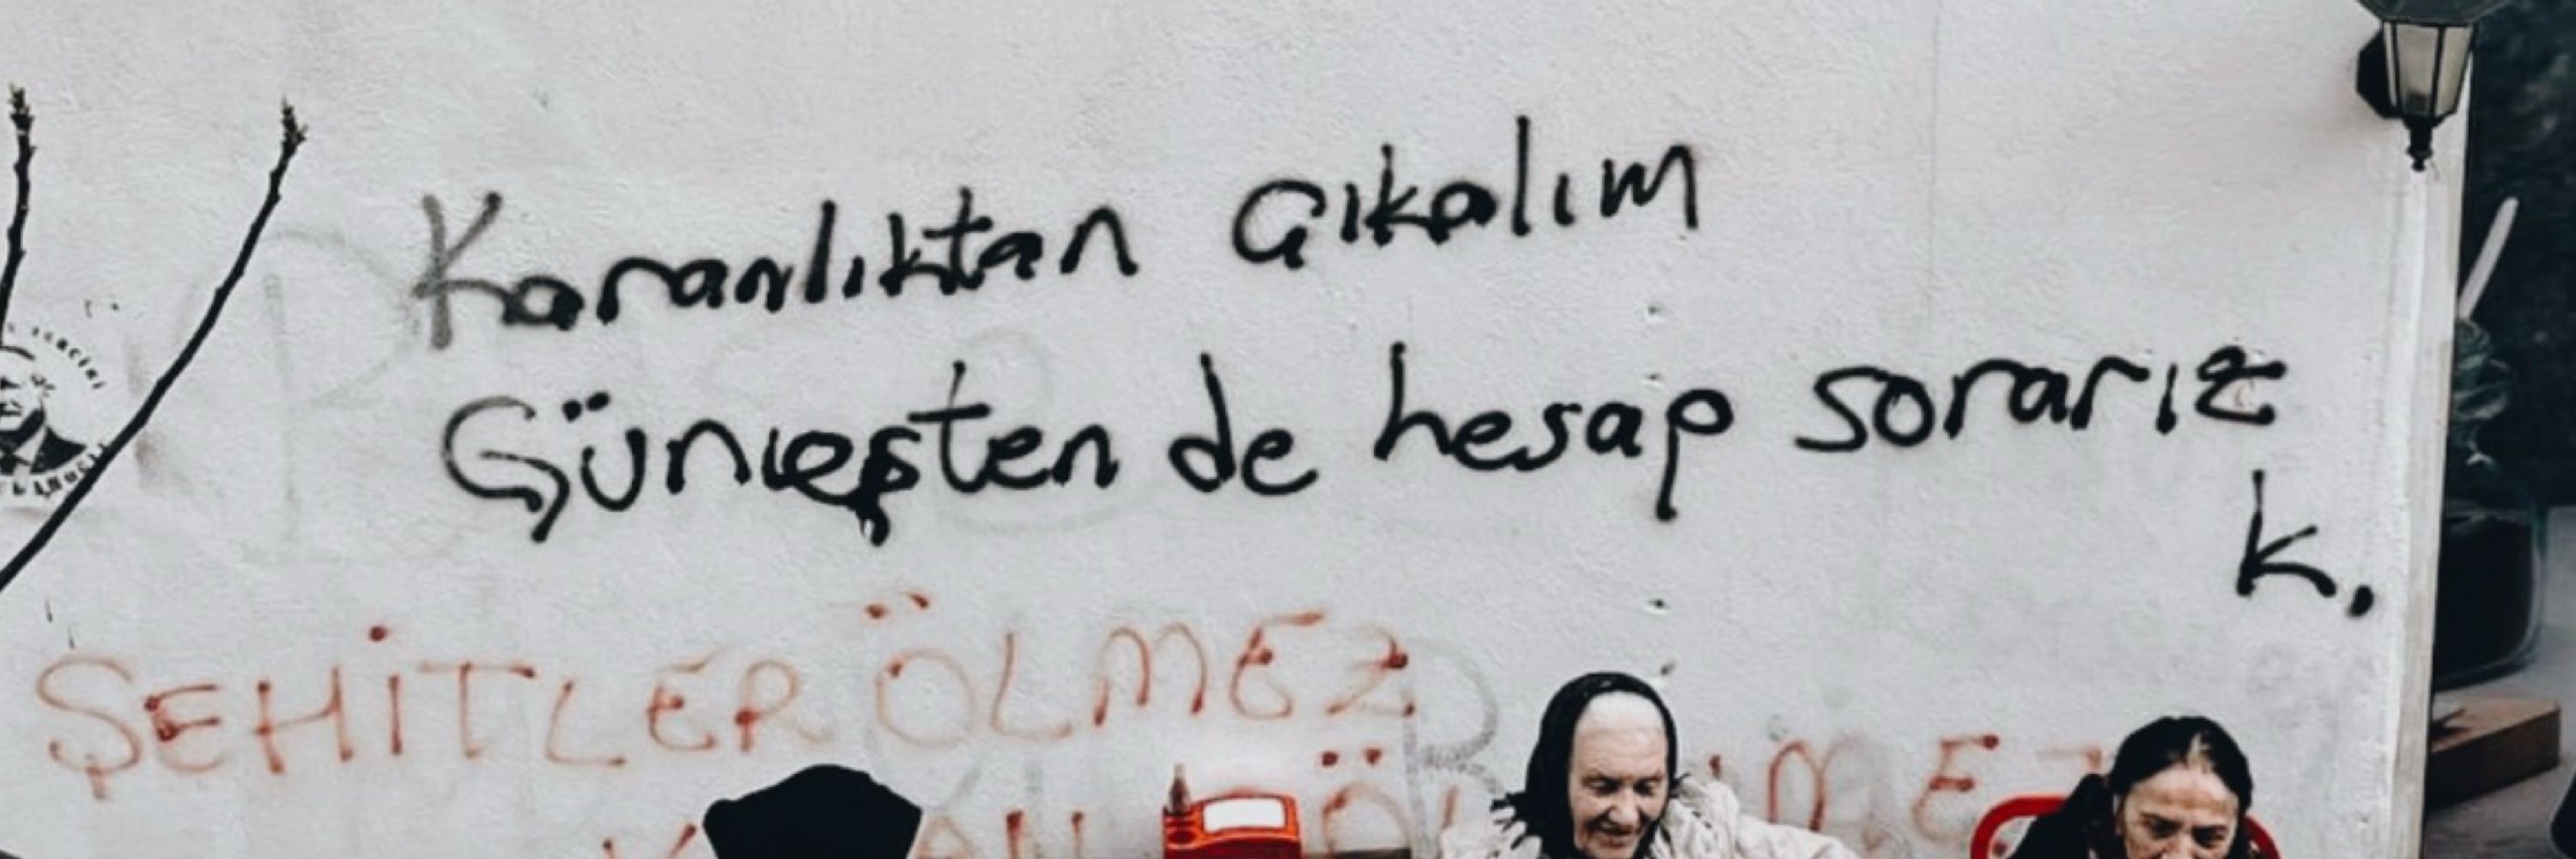 Karanlıktan çıkalım
Güneşten de hesap sorarız
K.
ŞEHİTLER ÖLMEZ